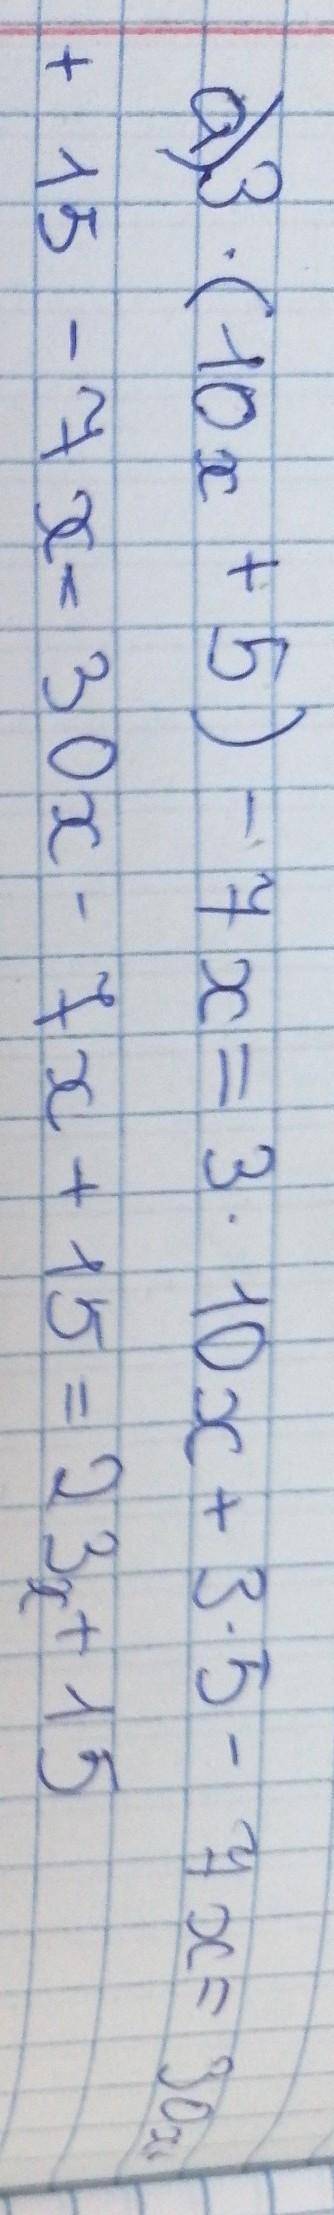 а) 3 · (10x + 5) - 7x = 3 · 10x + 3 · 5 - 7x = 30x
+ 15 - 7x = 30x - 7x + 15 = 23x + 15